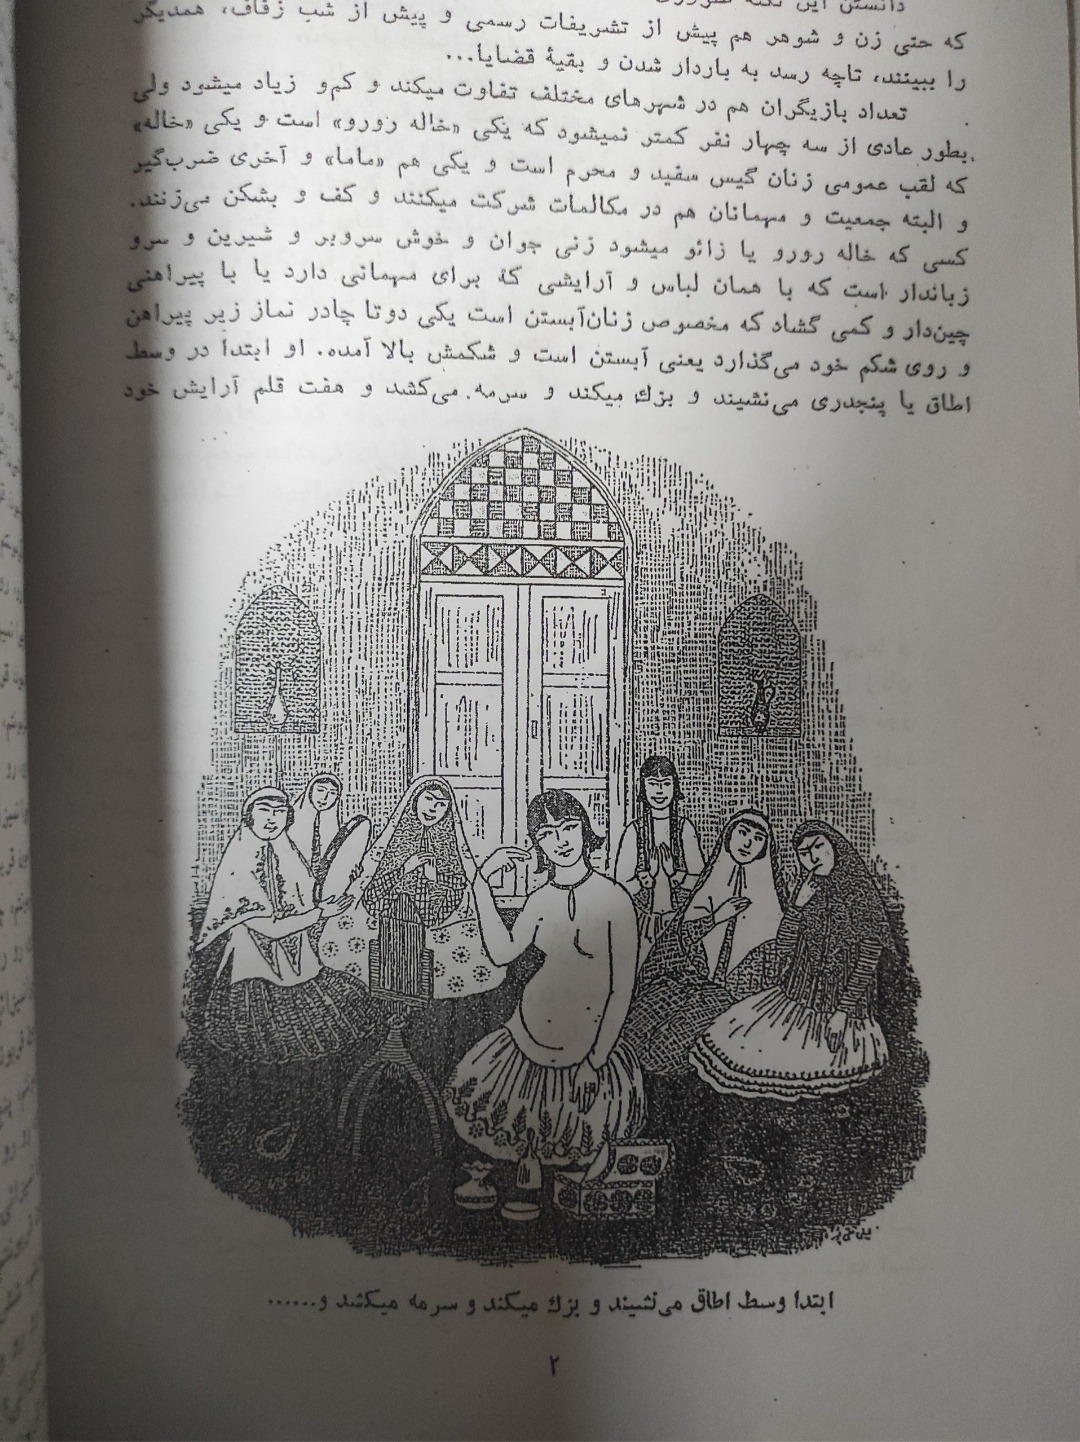 دانستن این نکته ضروری
که حتی زن و شوهر هم پیش از تشریفات رسمی و پیش از شب زفاف، همدیگر
را ببینند، تاچه رسد به باردار شدن و بقیهٔ قضایا...
تعداد بازیگران هم در شهرهای مختلف تفاوت میکند و کم‌و زیاد میشود ولی
بطور عادی از سه چهار نفر کمتر نمیشود که یکی «خاله رورو» است و یکی «خاله»
که لقب عمومی زنان گیس سفید و محرم است و یکی هم «ماما» و آخری ضرب‌گیر
و البته جمعیت و مهمانان هم در مکالمات شرکت میکنند و کف و بشکن می‌زنند.
کسی که خاله رورو یا زائو میشود زنی جوان و خوش سروبر و شیرین و سرو
زباندار است که با همان لباس و آرایشی که برای مهمانی دارد یا با پیراهنی
چین‌دار و کمی گشاد که مخصوص زنان‌آبستن است یکی دوتا چادر نماز زیر پیراهن
و روی شکم خود می‌گذارد یعنی آبستن است و شکمش بالا آمده. او ابتدا در وسط
اطاق یا پنجدری می‌نشیند و بزك میکند و سرمه می‌کشد و هفت قلم آرایش خود
ابتدا وسط اطاق می‌نشیند و بزك میکند و سرمه میکشد و......
۲